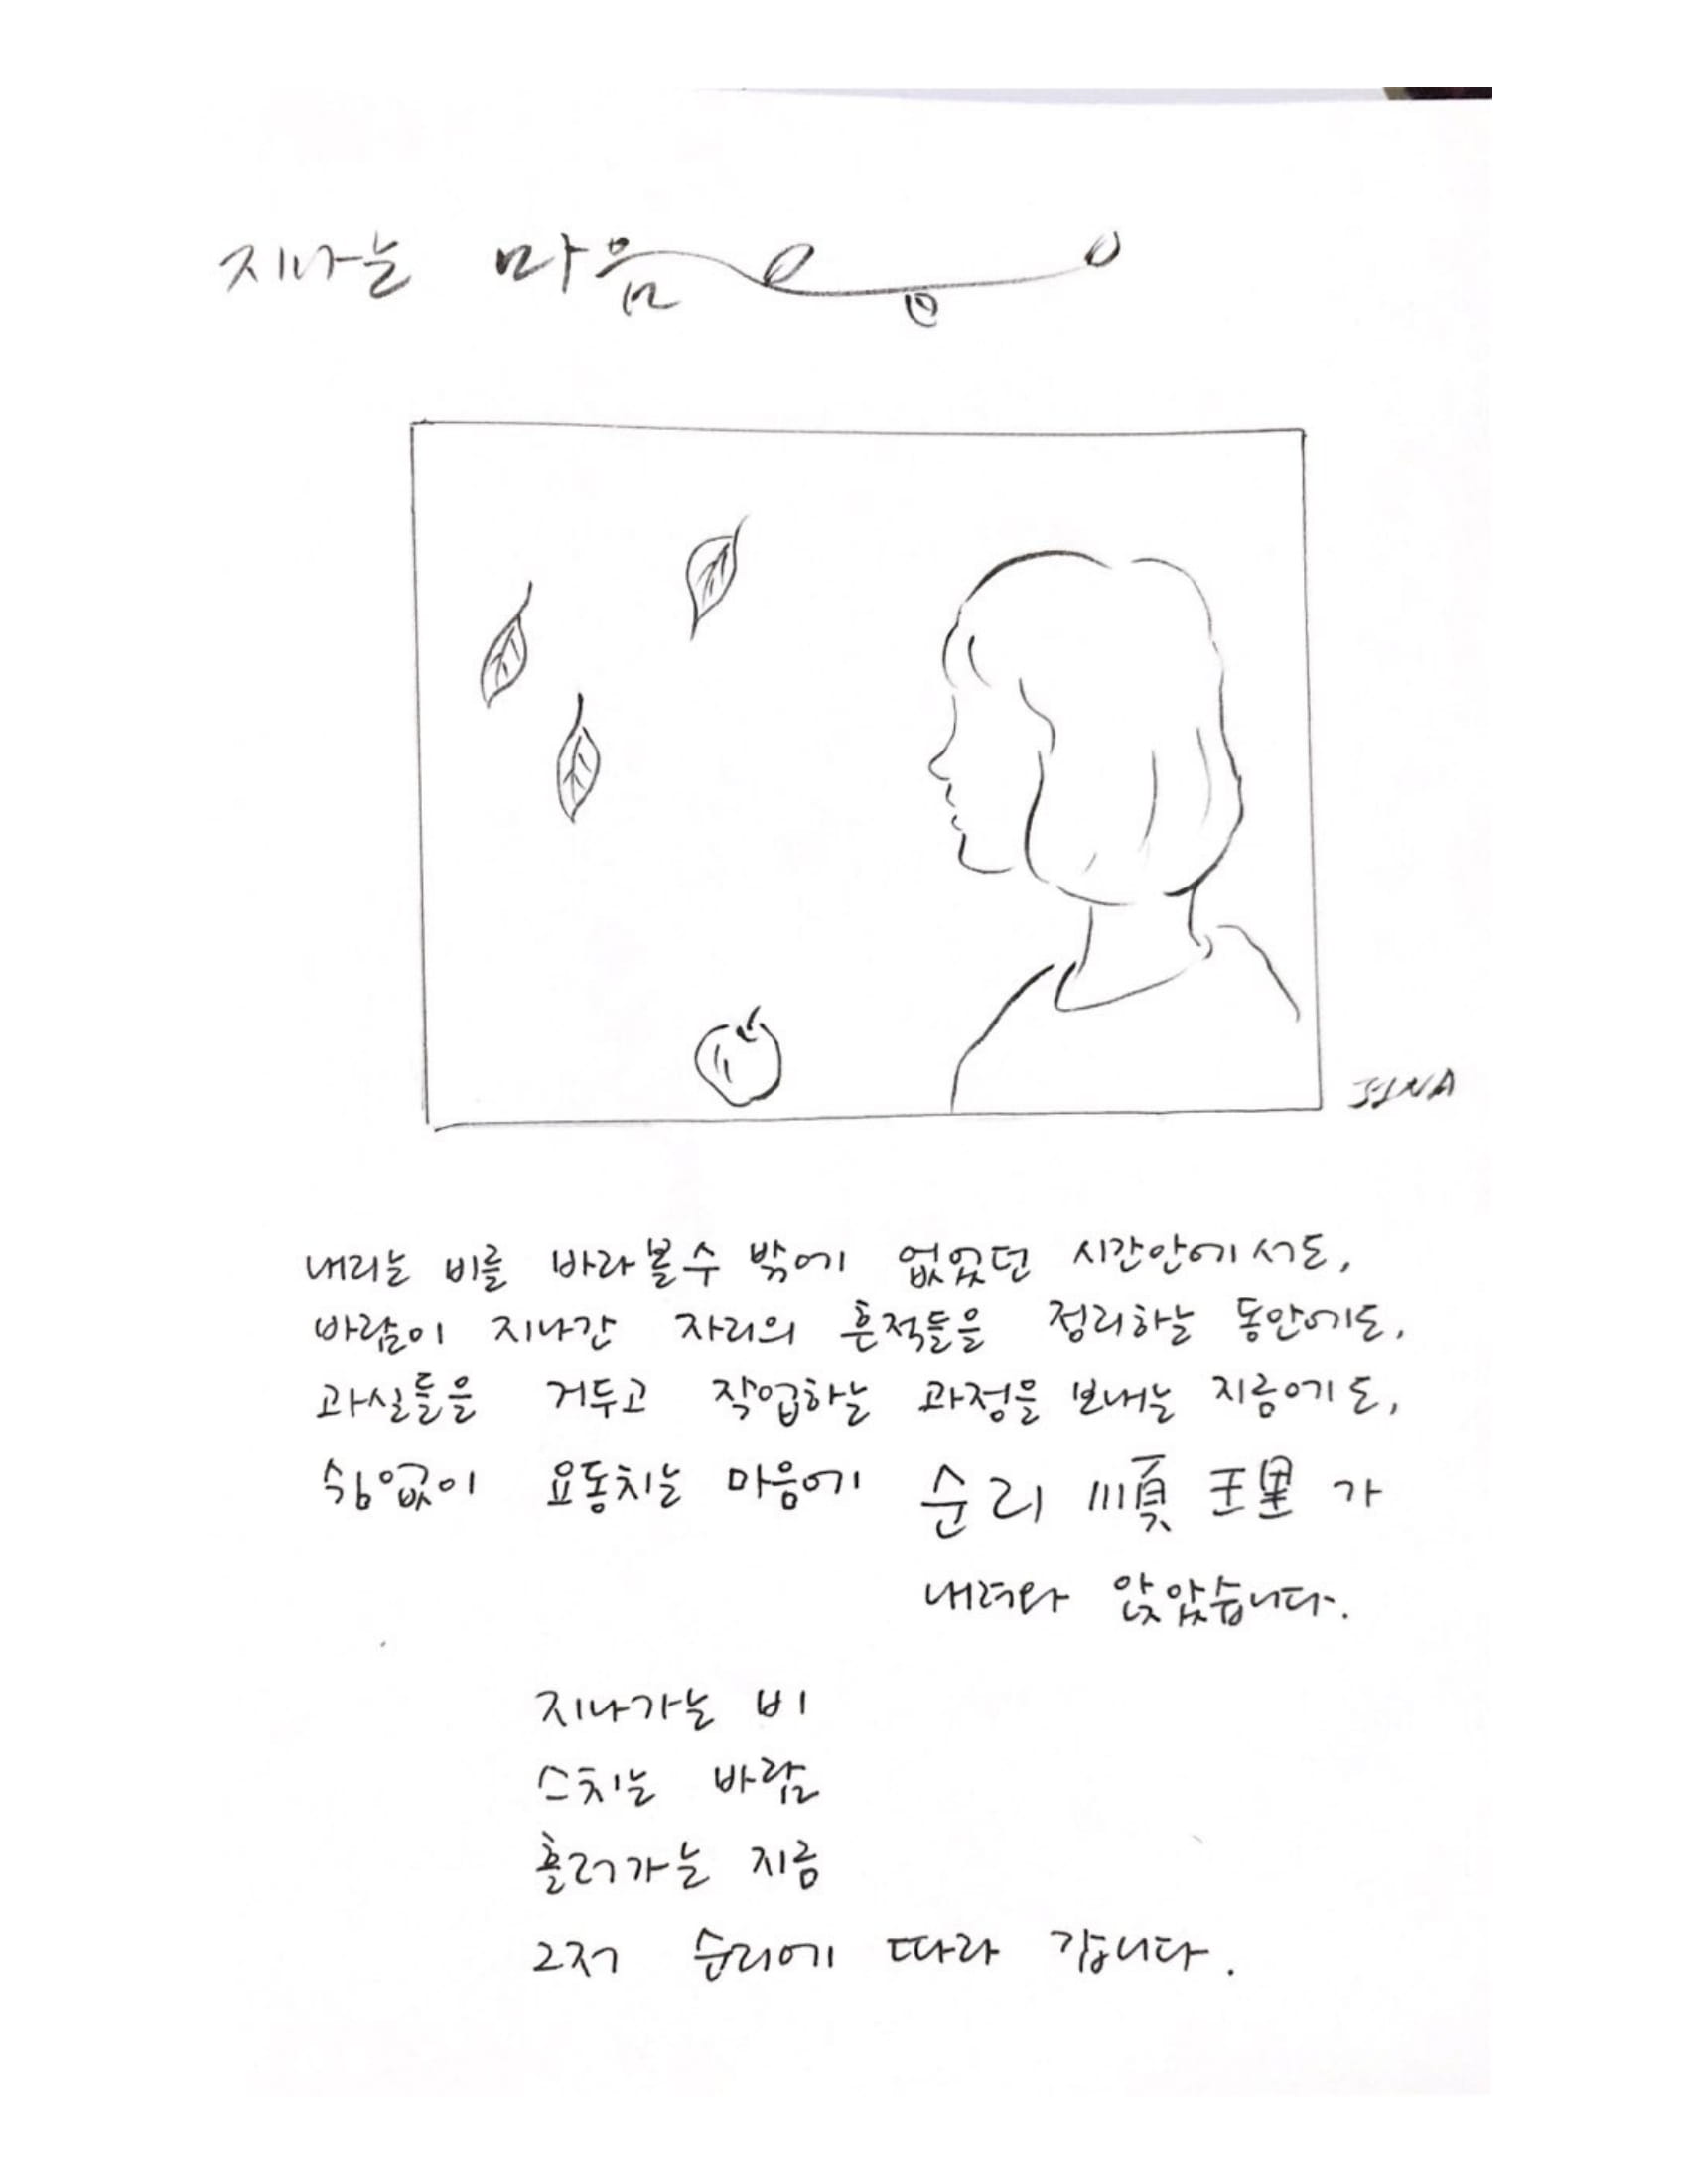 지나는 마음
JINA
내리는 비를 바라볼수 밖에 없었던 시간안에서도,
바람이 지나간 자리의 흔적들을 정리하는 동안에도,
과실들을 거두고 작업하는 과정을 보내는 지금에도,
쉼없이 요동치는 마음에 순리 順理 가
내려와 앉았습니다.
지나가는 비
스치는 바람
흘러가는 지금
그저 순리에 따라 갑니다.